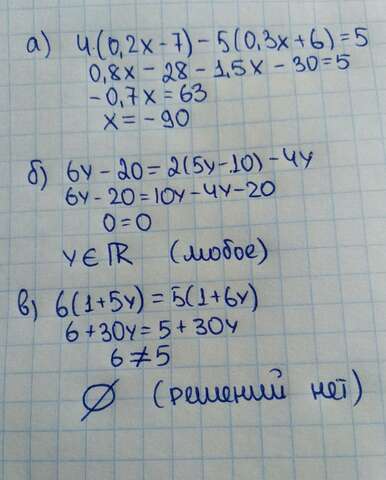 а) 4·(0,2x-7)-5(0,3x+6)=5
0,8x-28-1,5x-30=5
-0,7x=63
x=-90
б) 6y-20=2(5y-10)-4y
6y-20=10y-4y-20
0=0
y∈ℝ (любое)
в) 6(1+5y)=5(1+6y)
6+30y=5+30y
6≠5
∅ (решений нет)